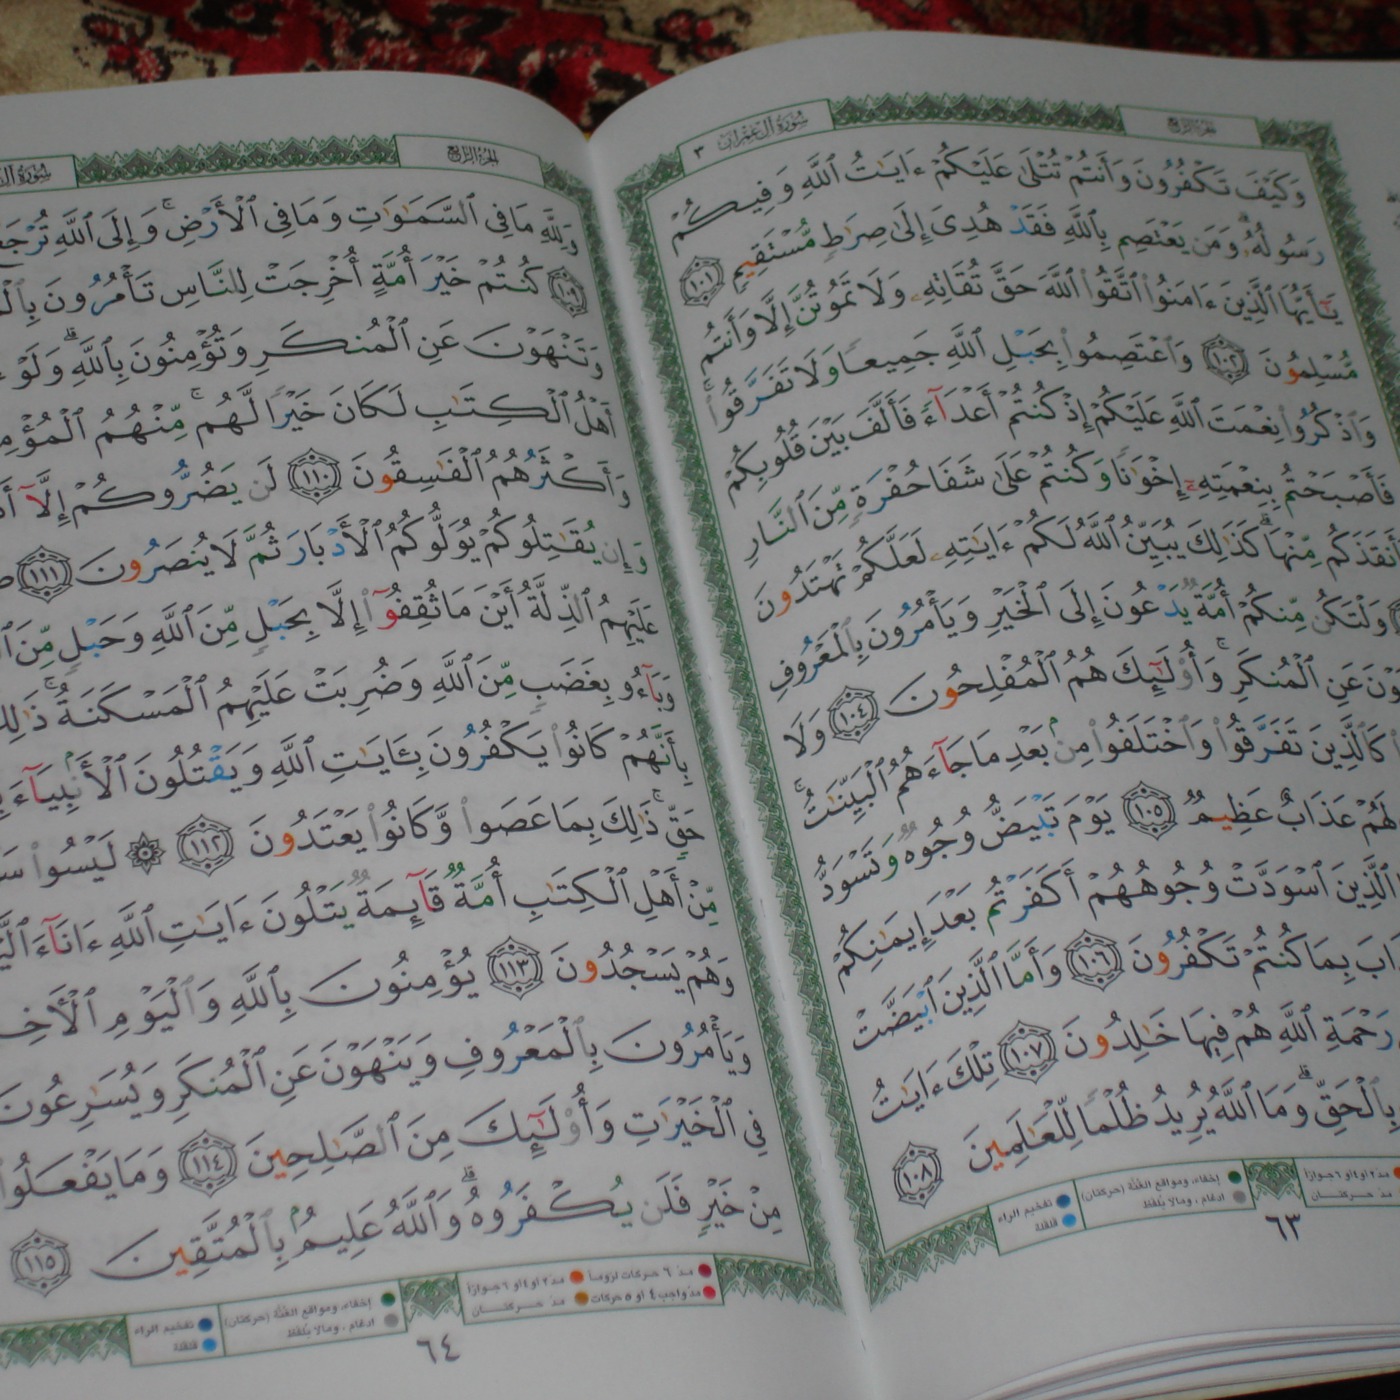 سُورَةُ آلِ عِمْرَان ٣
الجزء الرابع
وَكَيْفَ تَكْفُرُونَ وَأَنتُمْ تُتْلَىٰ عَلَيْكُمْ ءَايَٰتُ ٱللَّهِ وَفِيكُمْ
رَسُولُهُۥ ۗ وَمَن يَعْتَصِم بِٱللَّهِ فَقَدْ هُدِىَ إِلَىٰ صِرَٰطٍ مُّسْتَقِيمٍ ١٠١
يَٰٓأَيُّهَا ٱلَّذِينَ ءَامَنُوا۟ ٱتَّقُوا۟ ٱللَّهَ حَقَّ تُقَاتِهِۦ وَلَا تَمُوتُنَّ إِلَّا وَأَنتُم
مُّسْلِمُونَ ١٠٢ وَٱعْتَصِمُوا۟ بِحَبْلِ ٱللَّهِ جَمِيعًا وَلَا تَفَرَّقُوا۟ ۚ
وَٱذْكُرُوا۟ نِعْمَتَ ٱللَّهِ عَلَيْكُمْ إِذْ كُنتُمْ أَعْدَآءً فَأَلَّفَ بَيْنَ قُلُوبِكُمْ
فَأَصْبَحْتُم بِنِعْمَتِهِۦٓ إِخْوَٰنًا وَكُنتُمْ عَلَىٰ شَفَا حُفْرَةٍ مِّنَ ٱلنَّارِ
أَنقَذَكُم مِّنْهَا ۗ كَذَٰلِكَ يُبَيِّنُ ٱللَّهُ لَكُمْ ءَايَٰتِهِۦ لَعَلَّكُمْ تَهْتَدُونَ
وَلْتَكُن مِّنكُمْ أُمَّةٌ يَدْعُونَ إِلَى ٱلْخَيْرِ وَيَأْمُرُونَ بِٱلْمَعْرُوفِ
وْنَ عَنِ ٱلْمُنكَرِ ۚ وَأُو۟لَٰٓئِكَ هُمُ ٱلْمُفْلِحُونَ ١٠٤ وَلَا
كَٱلَّذِينَ تَفَرَّقُوا۟ وَٱخْتَلَفُوا۟ مِنۢ بَعْدِ مَا جَآءَهُمُ ٱلْبَيِّنَٰتُ ۚ
لَهُمْ عَذَابٌ عَظِيمٌ ١٠٥ يَوْمَ تَبْيَضُّ وُجُوهٌ وَتَسْوَدُّ
ٱلَّذِينَ ٱسْوَدَّتْ وُجُوهُهُمْ أَكَفَرْتُم بَعْدَ إِيمَٰنِكُمْ
ابَ بِمَا كُنتُمْ تَكْفُرُونَ ١٠٦ وَأَمَّا ٱلَّذِينَ ٱبْيَضَّتْ
رَحْمَةِ ٱللَّهِ هُمْ فِيهَا خَٰلِدُونَ ١٠٧ تِلْكَ ءَايَٰتُ
بِٱلْحَقِّ ۗ وَمَا ٱللَّهُ يُرِيدُ ظُلْمًا لِّلْعَٰلَمِينَ ١٠٨
إخفاء، ومواقع الغُنَّة (حركتان)
تفخيم الراء
إدغام، ومالا يُلفَظ
قلقلة
٦٣
الجزء الرابع
وَلِلَّهِ مَا فِى ٱلسَّمَٰوَٰتِ وَمَا فِى ٱلْأَرْضِ ۚ وَإِلَى ٱللَّهِ تُرْجَعُ
١٠٩ كُنتُمْ خَيْرَ أُمَّةٍ أُخْرِجَتْ لِلنَّاسِ تَأْمُرُونَ
وَتَنْهَوْنَ عَنِ ٱلْمُنكَرِ وَتُؤْمِنُونَ بِٱللَّهِ ۗ وَلَوْ
أَهْلُ ٱلْكِتَٰبِ لَكَانَ خَيْرًا لَّهُم ۚ مِّنْهُمُ ٱلْمُؤْمِ
وَأَكْثَرُهُمُ ٱلْفَٰسِقُونَ ١١٠ لَن يَضُرُّوكُمْ إِلَّآ
وَإِن يُقَٰتِلُوكُمْ يُوَلُّوكُمُ ٱلْأَدْبَارَ ثُمَّ لَا يُنصَرُونَ ١١١
عَلَيْهِمُ ٱلذِّلَّةُ أَيْنَ مَا ثُقِفُوٓا۟ إِلَّا بِحَبْلٍ مِّنَ ٱللَّهِ وَحَبْلٍ مِّنَ
وَبَآءُو بِغَضَبٍ مِّنَ ٱللَّهِ وَضُرِبَتْ عَلَيْهِمُ ٱلْمَسْكَنَةُ ۚ ذَٰلِكَ
بِأَنَّهُمْ كَانُوا۟ يَكْفُرُونَ بِـَٔايَٰتِ ٱللَّهِ وَيَقْتُلُونَ ٱلْأَنۢبِيَآءَ
حَقٍّ ۚ ذَٰلِكَ بِمَا عَصَوا۟ وَّكَانُوا۟ يَعْتَدُونَ ١١٢ ۞ لَيْسُوا۟
مِّنْ أَهْلِ ٱلْكِتَٰبِ أُمَّةٌ قَآئِمَةٌ يَتْلُونَ ءَايَٰتِ ٱللَّهِ ءَانَآءَ
وَهُمْ يَسْجُدُونَ ١١٣ يُؤْمِنُونَ بِٱللَّهِ وَٱلْيَوْمِ ٱلْأَخِ
وَيَأْمُرُونَ بِٱلْمَعْرُوفِ وَيَنْهَوْنَ عَنِ ٱلْمُنكَرِ وَيُسَٰرِعُونَ
فِى ٱلْخَيْرَٰتِ وَأُو۟لَٰٓئِكَ مِنَ ٱلصَّٰلِحِينَ ١١٤ وَمَا يَفْعَلُوا۟
مِنْ خَيْرٍ فَلَن يُكْفَرُوهُ ۗ وَٱللَّهُ عَلِيمٌۢ بِٱلْمُتَّقِينَ ١١٥
مدّ ٦ حركات لزوماً
مدّ ٢ او ٤ او ٦ جوازاً
مدّ واجب ٤ او ٥ حركات
مدّ حركتان
إخفاء، ومواقع الغُنَّة (حركتان)
تفخيم الراء
إدغام، ومالا يُلفَظ
قلقلة
٦٤